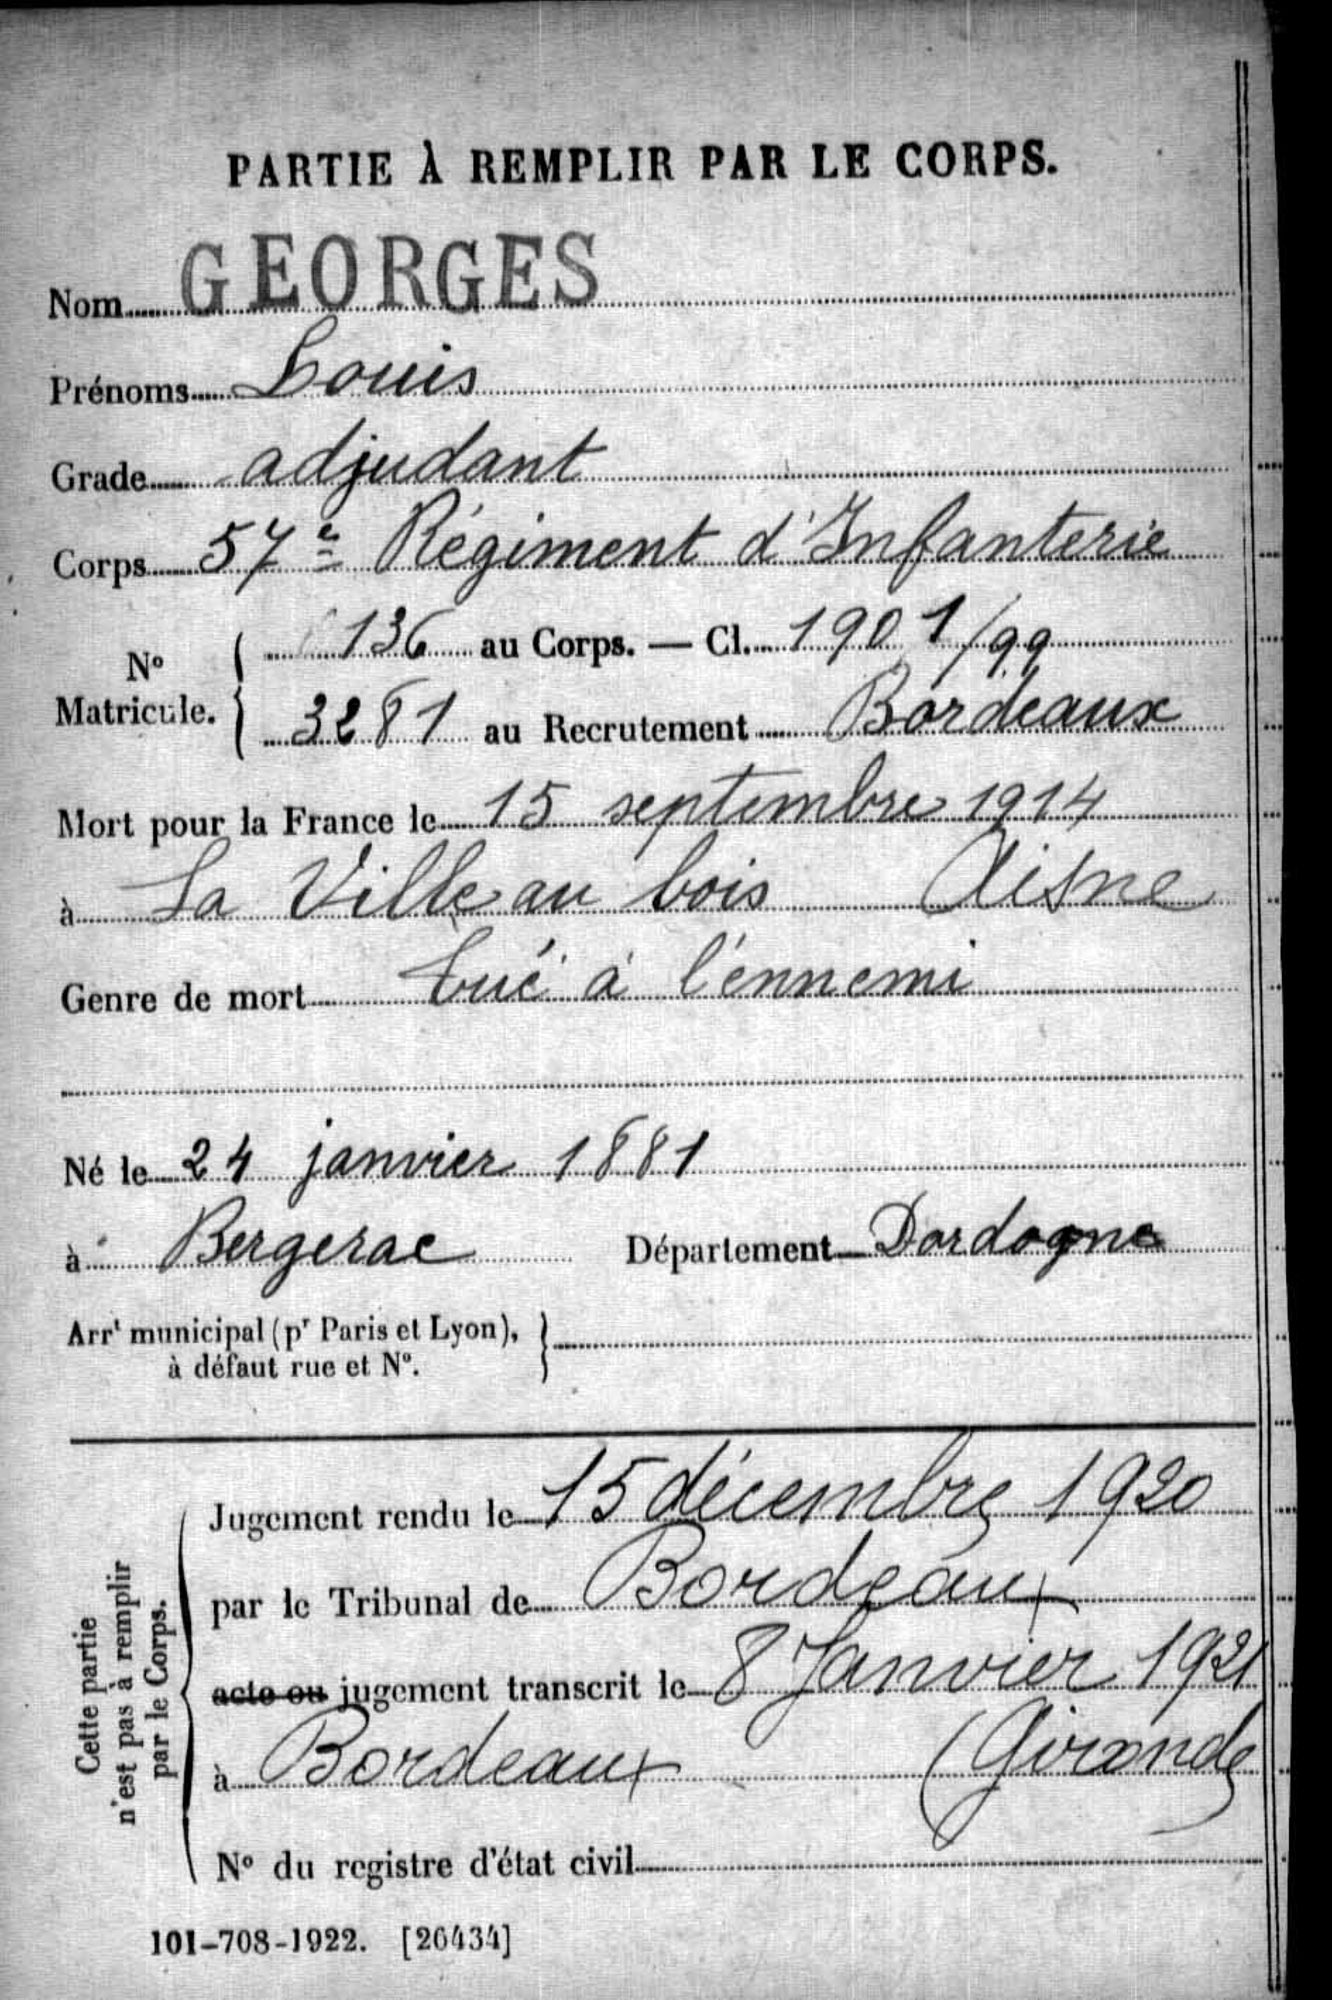 PARTIE À REMPLIR PAR LE CORPS.
Nom GEORGES
Prénoms Louis
Grade adjudant
Corps 57e Régiment d'Infanterie
N° Matricule. { 136 au Corps. — Cl. 1901/99
3281 au Recrutement Bordeaux
Mort pour la France le 15 septembre 1914
à La Ville au bois Aisne
Genre de mort tué à l'ennemi
Né le 24 janvier 1881
à Bergerac Département Dordogne
Arrt municipal (pr Paris et Lyon), }
à défaut rue et N°.
Cette partie
n'est pas à remplir
par le Corps.
Jugement rendu le 15 décembre 1920
par le Tribunal de Bordeaux
acte ou jugement transcrit le 8 Janvier 1921
à Bordeaux (Gironde
N° du registre d'état civil
101-708-1922. [26434]